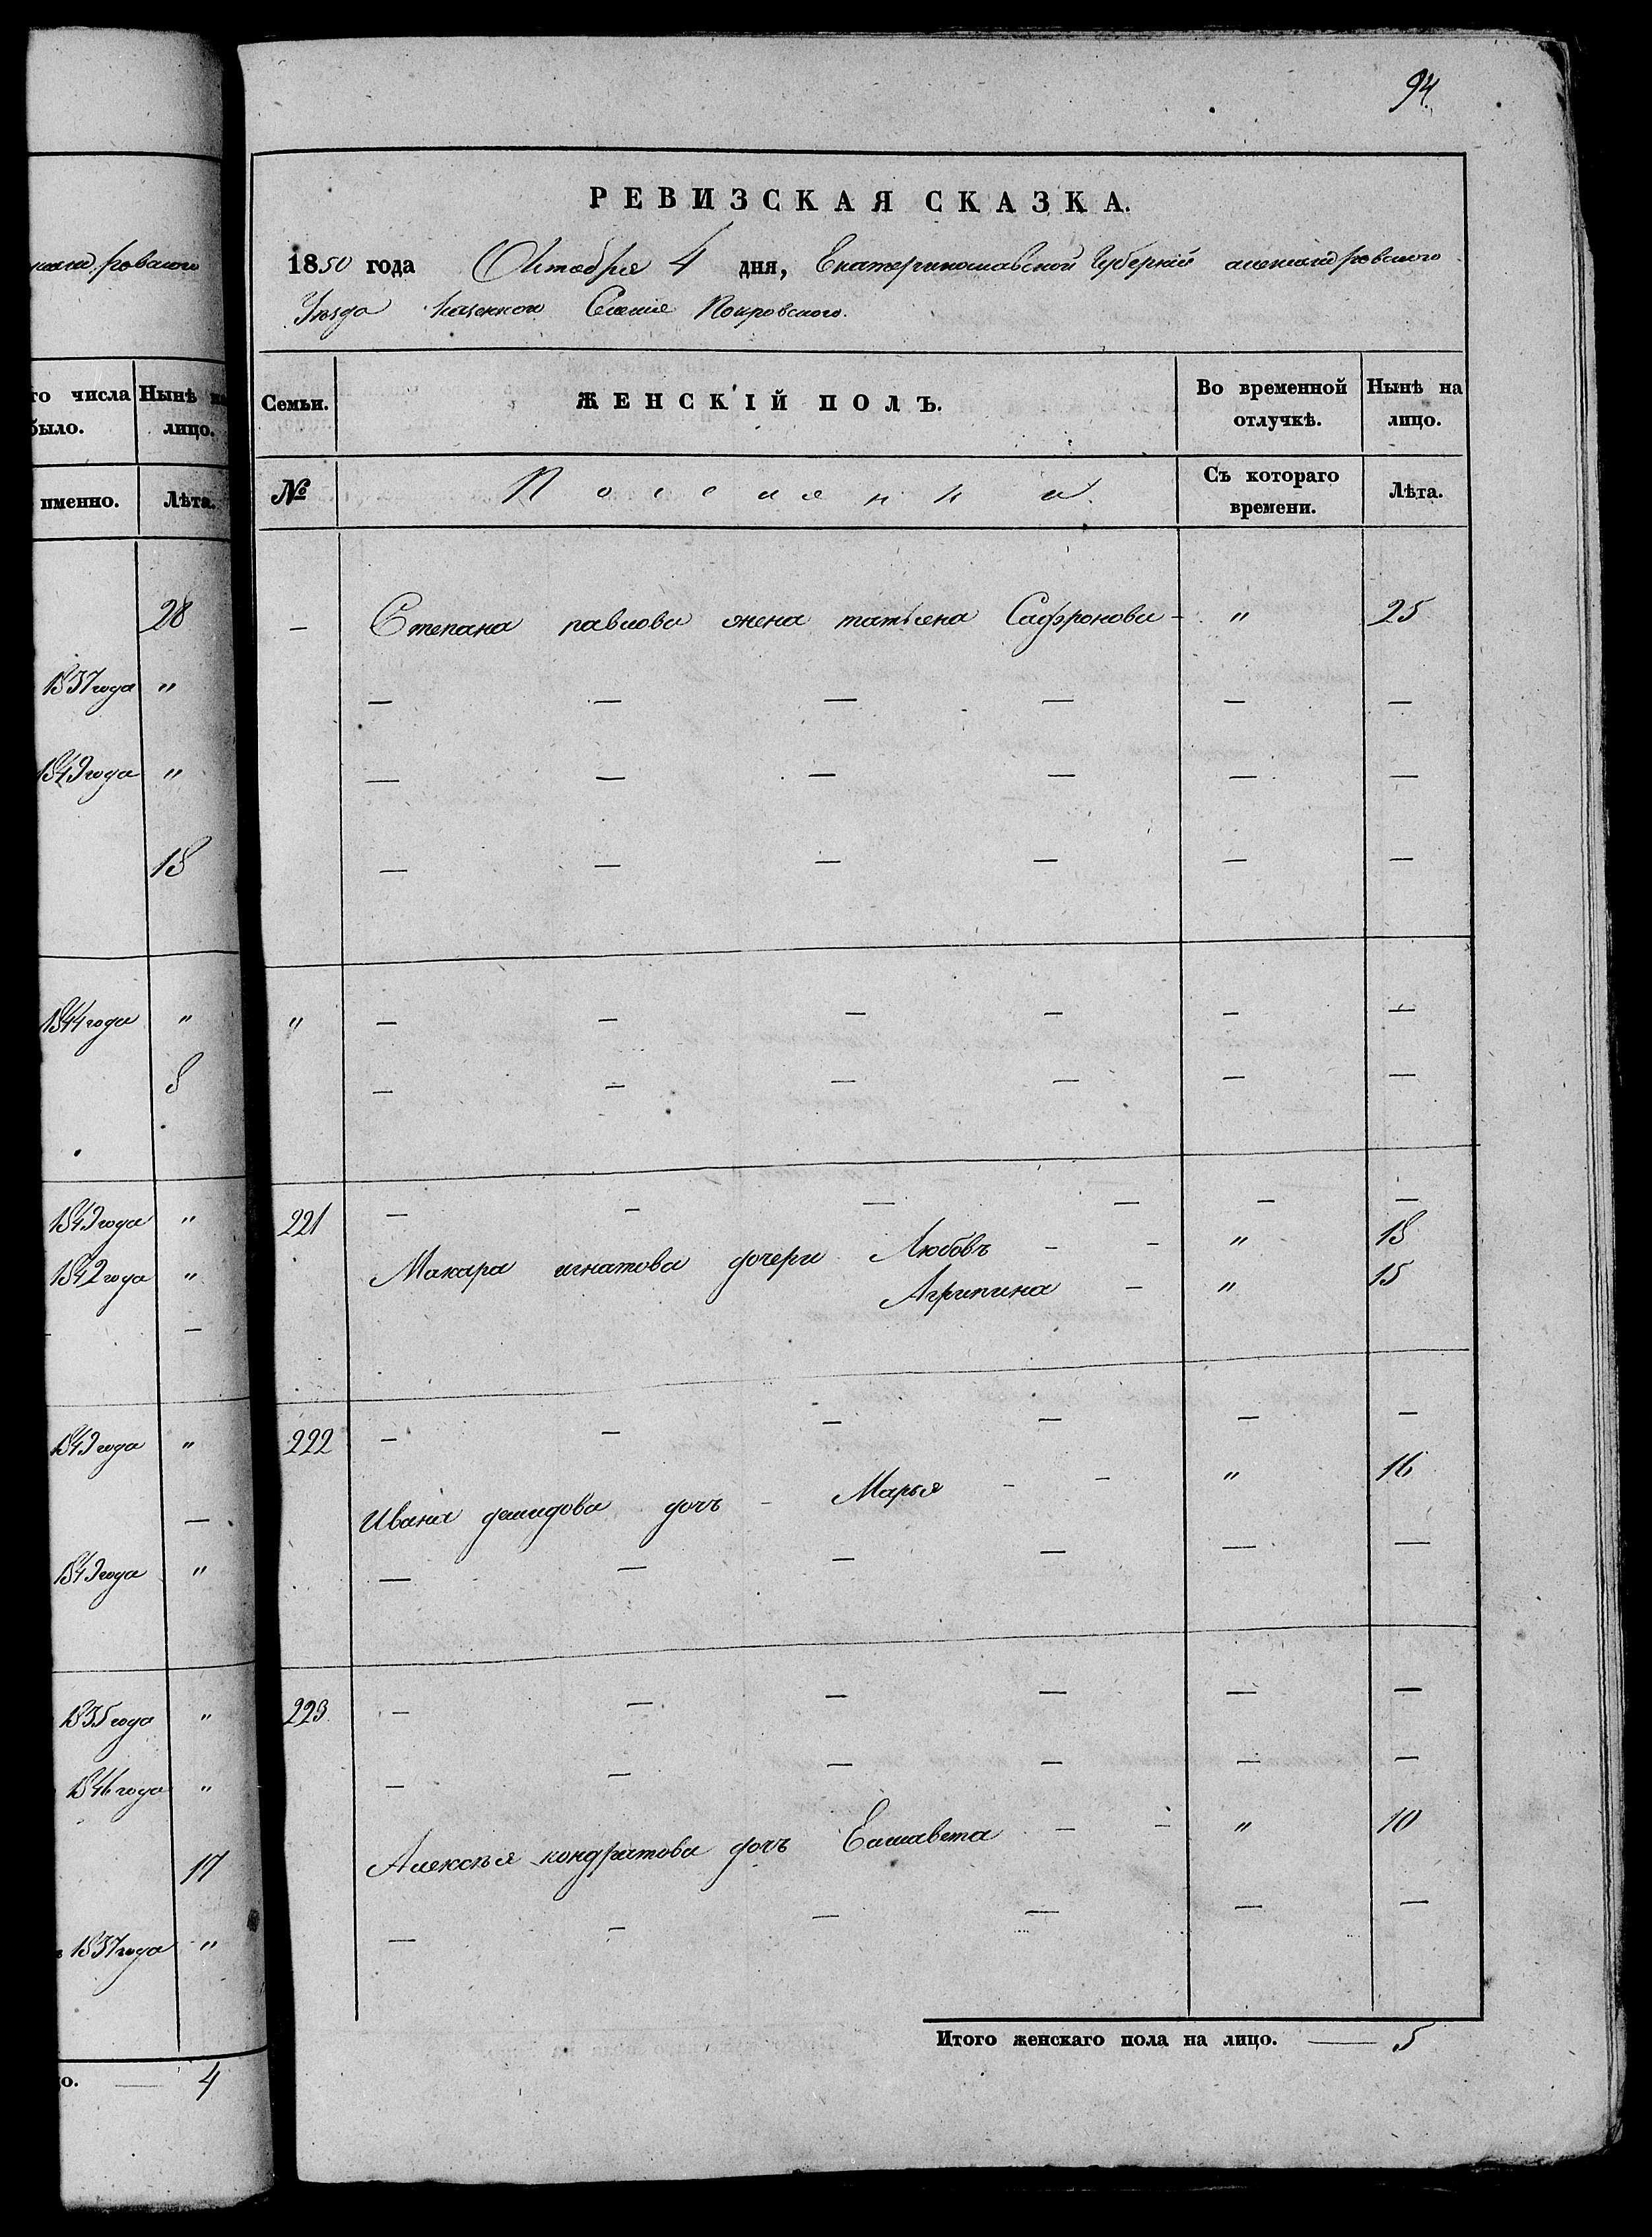 94.
РЕВИЗСКАЯ СКАЗКА.
1850 года Октября 4 дня, Екатеринославской Губерніи александровского
Уезда казенного Селенія Покровского.
Семьи. ЖЕНСКІЙ ПОЛЪ. Во временной отлучкѣ. Нынѣ на лицо.
№ Поселянки. Съ котораго времени. Лѣта.
— Степана павлова жена татьяна Сафронова - " 25
— — — — — —
— — — — — —
— — — — — —
" — — — — — —
— — — — — —
221 — — — — — —
Макара игнатова дочери Любовь - - " 18
Агрипина - " 15
222 — — — — — —
Ивана демидова дочь - Марья - - " 16
— — — — — —
223 — — — — — —
— — — — — —
Алексѣя кондратова дочь Елисавета - - " 10
— — — — — —
Итого женскаго пола на лицо. — 5
ровского
го числа Нынѣ на
было. лицо.
именно. Лѣта.
28
1837 года "
1849 года "
18
1844 года "
8
1849 года "
1842 года "
—
1849 года "
—
1849 года "
1835 года "
1846 года "
17
1837 года "
о. — 4